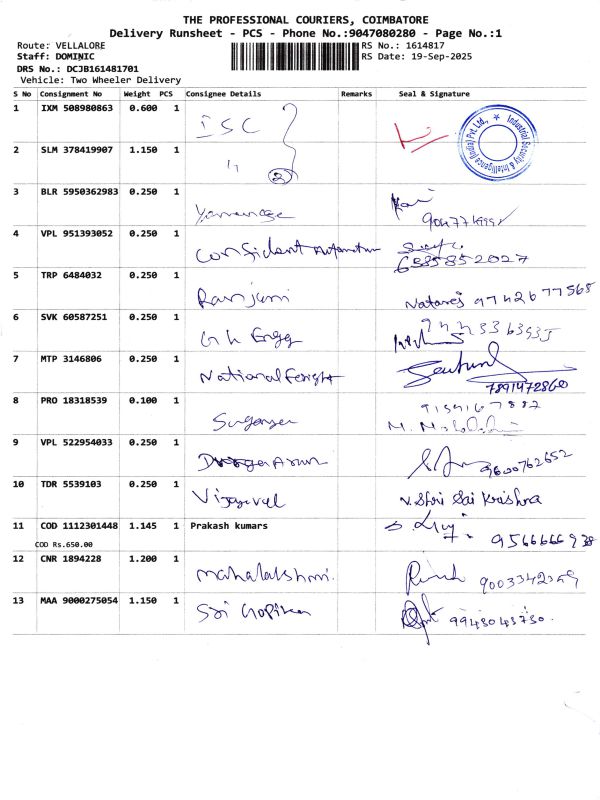 THE PROFESSIONAL COURIERS, COIMBATORE
Delivery Runsheet - PCS - Phone No.:9047080280 - Page No.:1
Route: VELLALORE RS No.: 1614817
Staff: DOMINIC RS Date: 19-Sep-2025
DRS No.: DCJB161481701
Vehicle: Two Wheeler Delivery
S No Consignment No Weight PCS Consignee Details Remarks Seal & Signature
1 IXM 508980863 0.600 1 ISC Industrial Security & Intelligence (India) Pvt. Ltd.,
2 SLM 378419907 1.150 1 " 2
3 BLR 5950362983 0.250 1
4 VPL 951393052 0.250 1 Confident Automation 6385852027
5 TRP 6484032 0.250 1 Ranjani Nataraj 9742677568
6 SVK 60587251 0.250 1 G K Engg
7 MTP 3146806 0.250 1 National Freight 7891472860
8 PRO 18318539 0.100 1
9 VPL 522954033 0.250 1 Arun 9600762652
10 TDR 5539103 0.250 1 Vijayavel V. Shri Sai Krishna
11 COD 1112301448 1.145 1 Prakash kumars 9566666938
COD Rs.650.00
12 CNR 1894228 1.200 1 mahalakshmi
13 MAA 9000275054 1.150 1 Sri Gopikan 9943043730